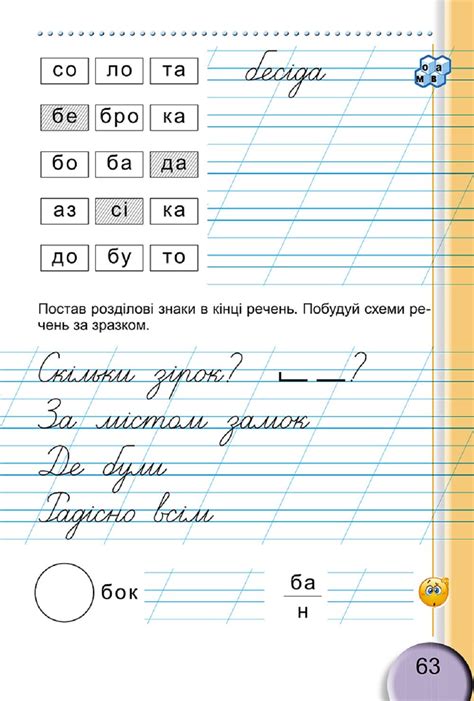 со ло та бесіда
о а
м в
бе бро ка
бо ба да
аз сі ка
до бу то
Постав розділові знаки в кінці речень. Побудуй схеми ре-
чень за зразком.
Скільки зірок? ?
За містом замок
Де були
Радісно всім
бок
ба
н
63